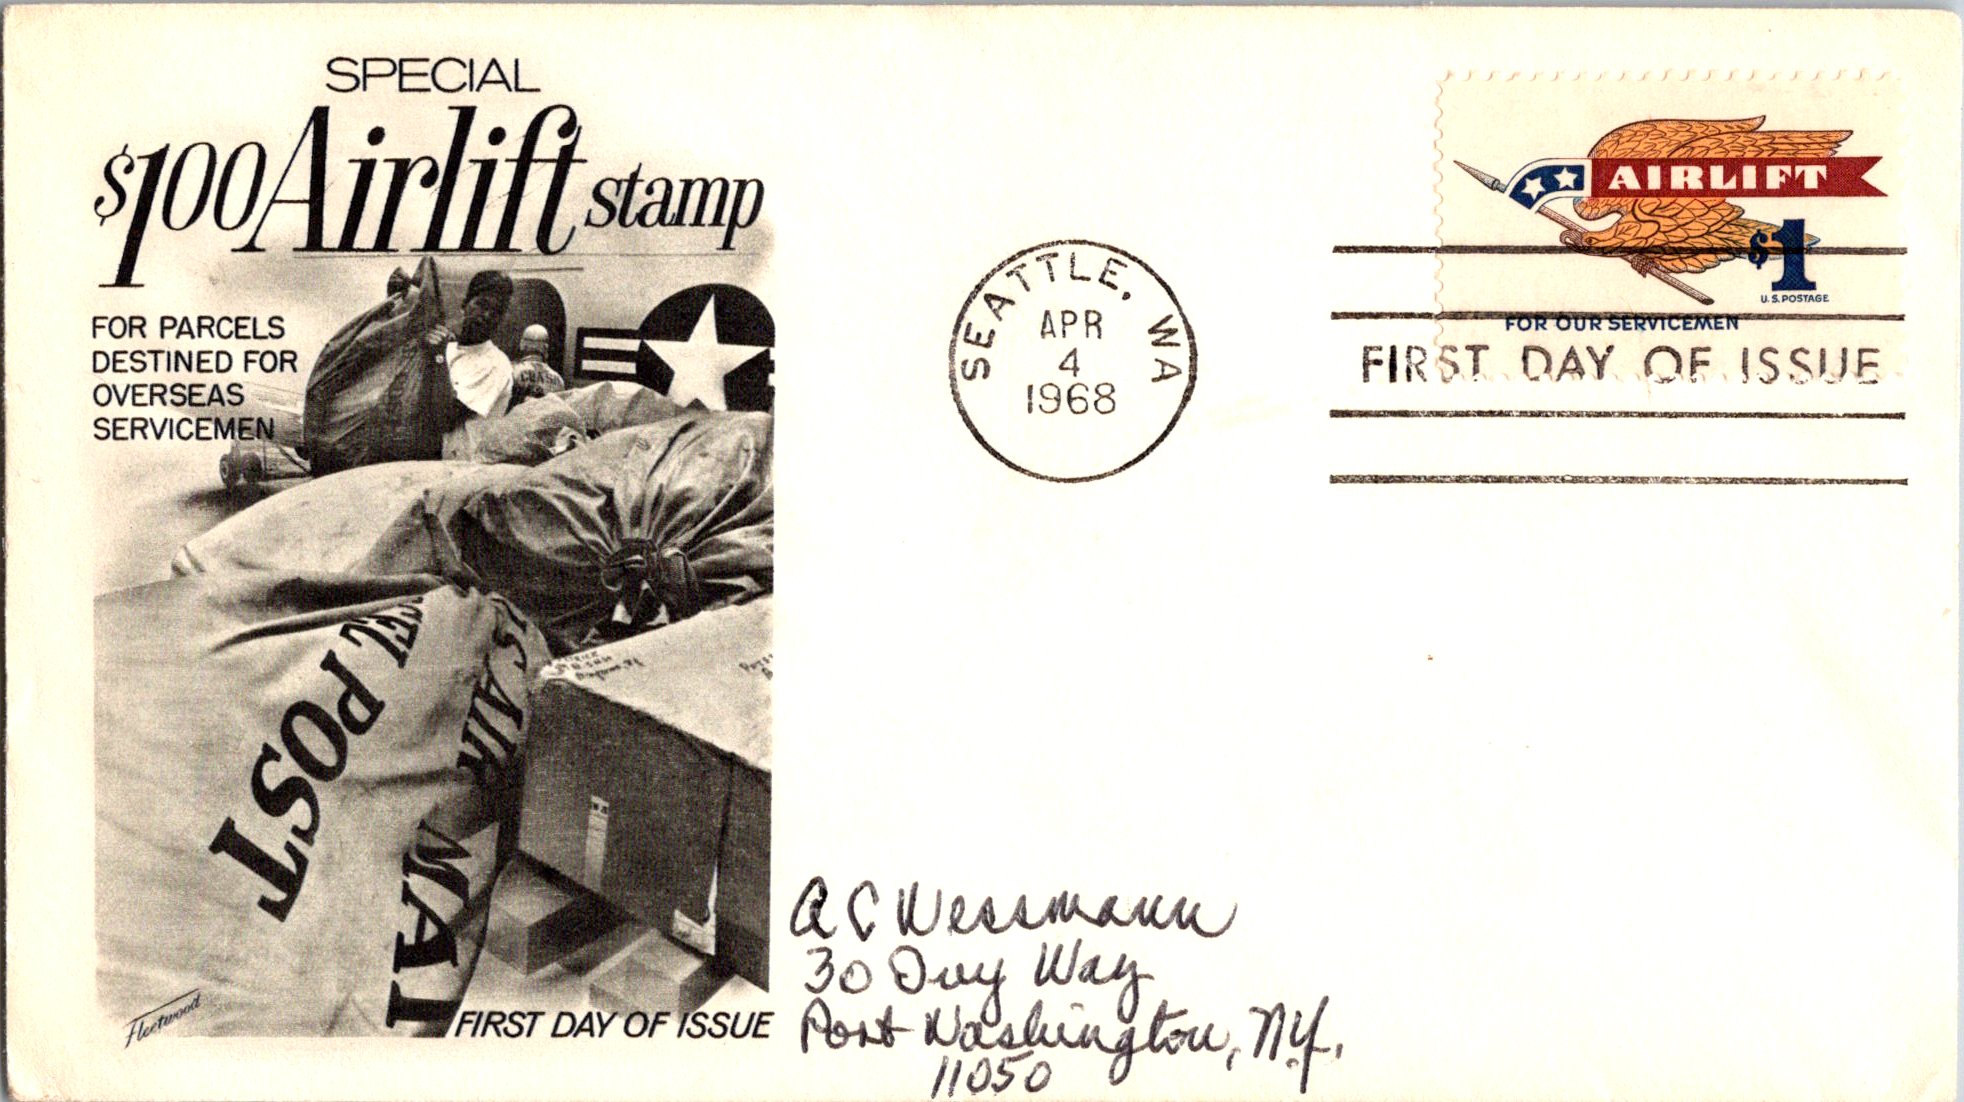 SPECIAL
$1.00 Airlift stamp
FOR PARCELS
DESTINED FOR
OVERSEAS
SERVICEMEN
POST
AIR
MAI
Fleetwood
FIRST DAY OF ISSUE
SEATTLE, WA
APR
4
1968
AIRLIFT
$1
U.S. POSTAGE
FOR OUR SERVICEMEN
FIRST DAY OF ISSUE
A C Wessmann
30 Ivy Way
Port Washington, N.Y.
11050